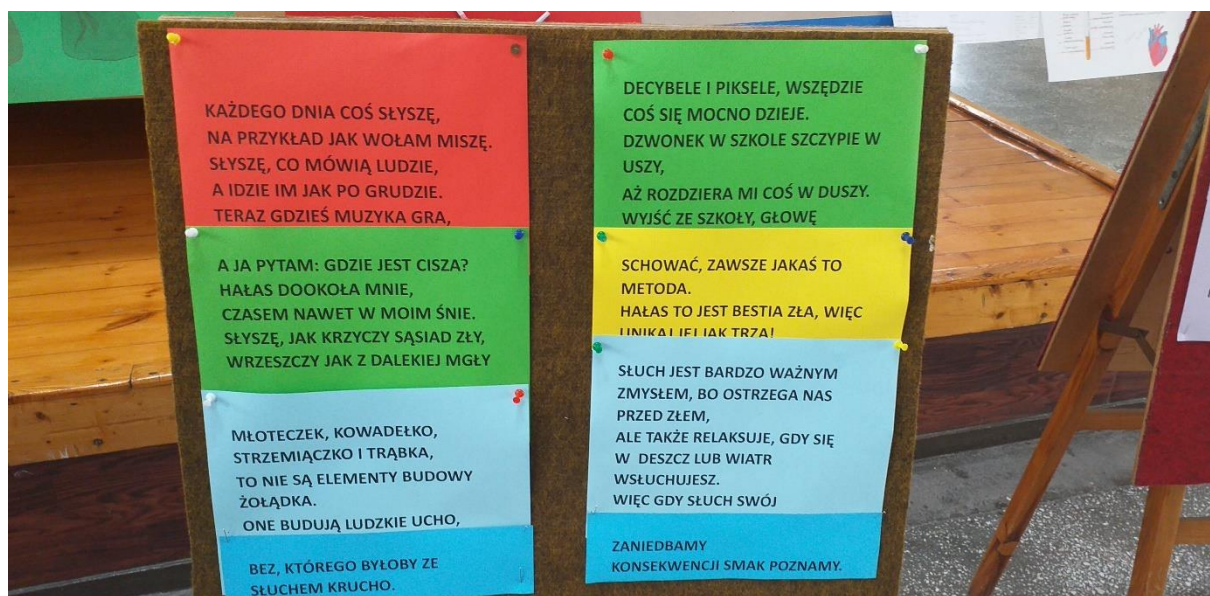 KAŻDEGO DNIA COŚ SŁYSZĘ,
NA PRZYKŁAD JAK WOŁAM MISZĘ.
SŁYSZĘ, CO MÓWIĄ LUDZIE,
A IDZIE IM JAK PO GRUDZIE.
TERAZ GDZIEŚ MUZYKA GRA,
A JA PYTAM: GDZIE JEST CISZA?
HAŁAS DOOKOŁA MNIE,
CZASEM NAWET W MOIM ŚNIE.
SŁYSZĘ, JAK KRZYCZY SĄSIAD ZŁY,
WRZESZCZY JAK Z DALEKIEJ MGŁY
MŁOTECZEK, KOWADEŁKO,
STRZEMIĄCZKO I TRĄBKA,
TO NIE SĄ ELEMENTY BUDOWY
ŻOŁĄDKA.
ONE BUDUJĄ LUDZKIE UCHO,
BEZ, KTÓREGO BYŁOBY ZE
SŁUCHEM KRUCHO.
DECYBELE I PIKSELE, WSZĘDZIE
COŚ SIĘ MOCNO DZIEJE.
DZWONEK W SZKOLE SZCZYPIE W
USZY,
AŻ ROZDZIERA MI COŚ W DUSZY.
WYJŚĆ ZE SZKOŁY, GŁOWĘ
SCHOWAĆ, ZAWSZE JAKAŚ TO
METODA.
HAŁAS TO JEST BESTIA ZŁA, WIĘC
UNIKAJ JEJ JAK TRZA!
SŁUCH JEST BARDZO WAŻNYM
ZMYSŁEM, BO OSTRZEGA NAS
PRZED ZŁEM,
ALE TAKŻE RELAKSUJE, GDY SIĘ
W DESZCZ LUB WIATR
WSŁUCHUJESZ.
WIĘC GDY SŁUCH SWÓJ
ZANIEDBAMY
KONSEKWENCJI SMAK POZNAMY.